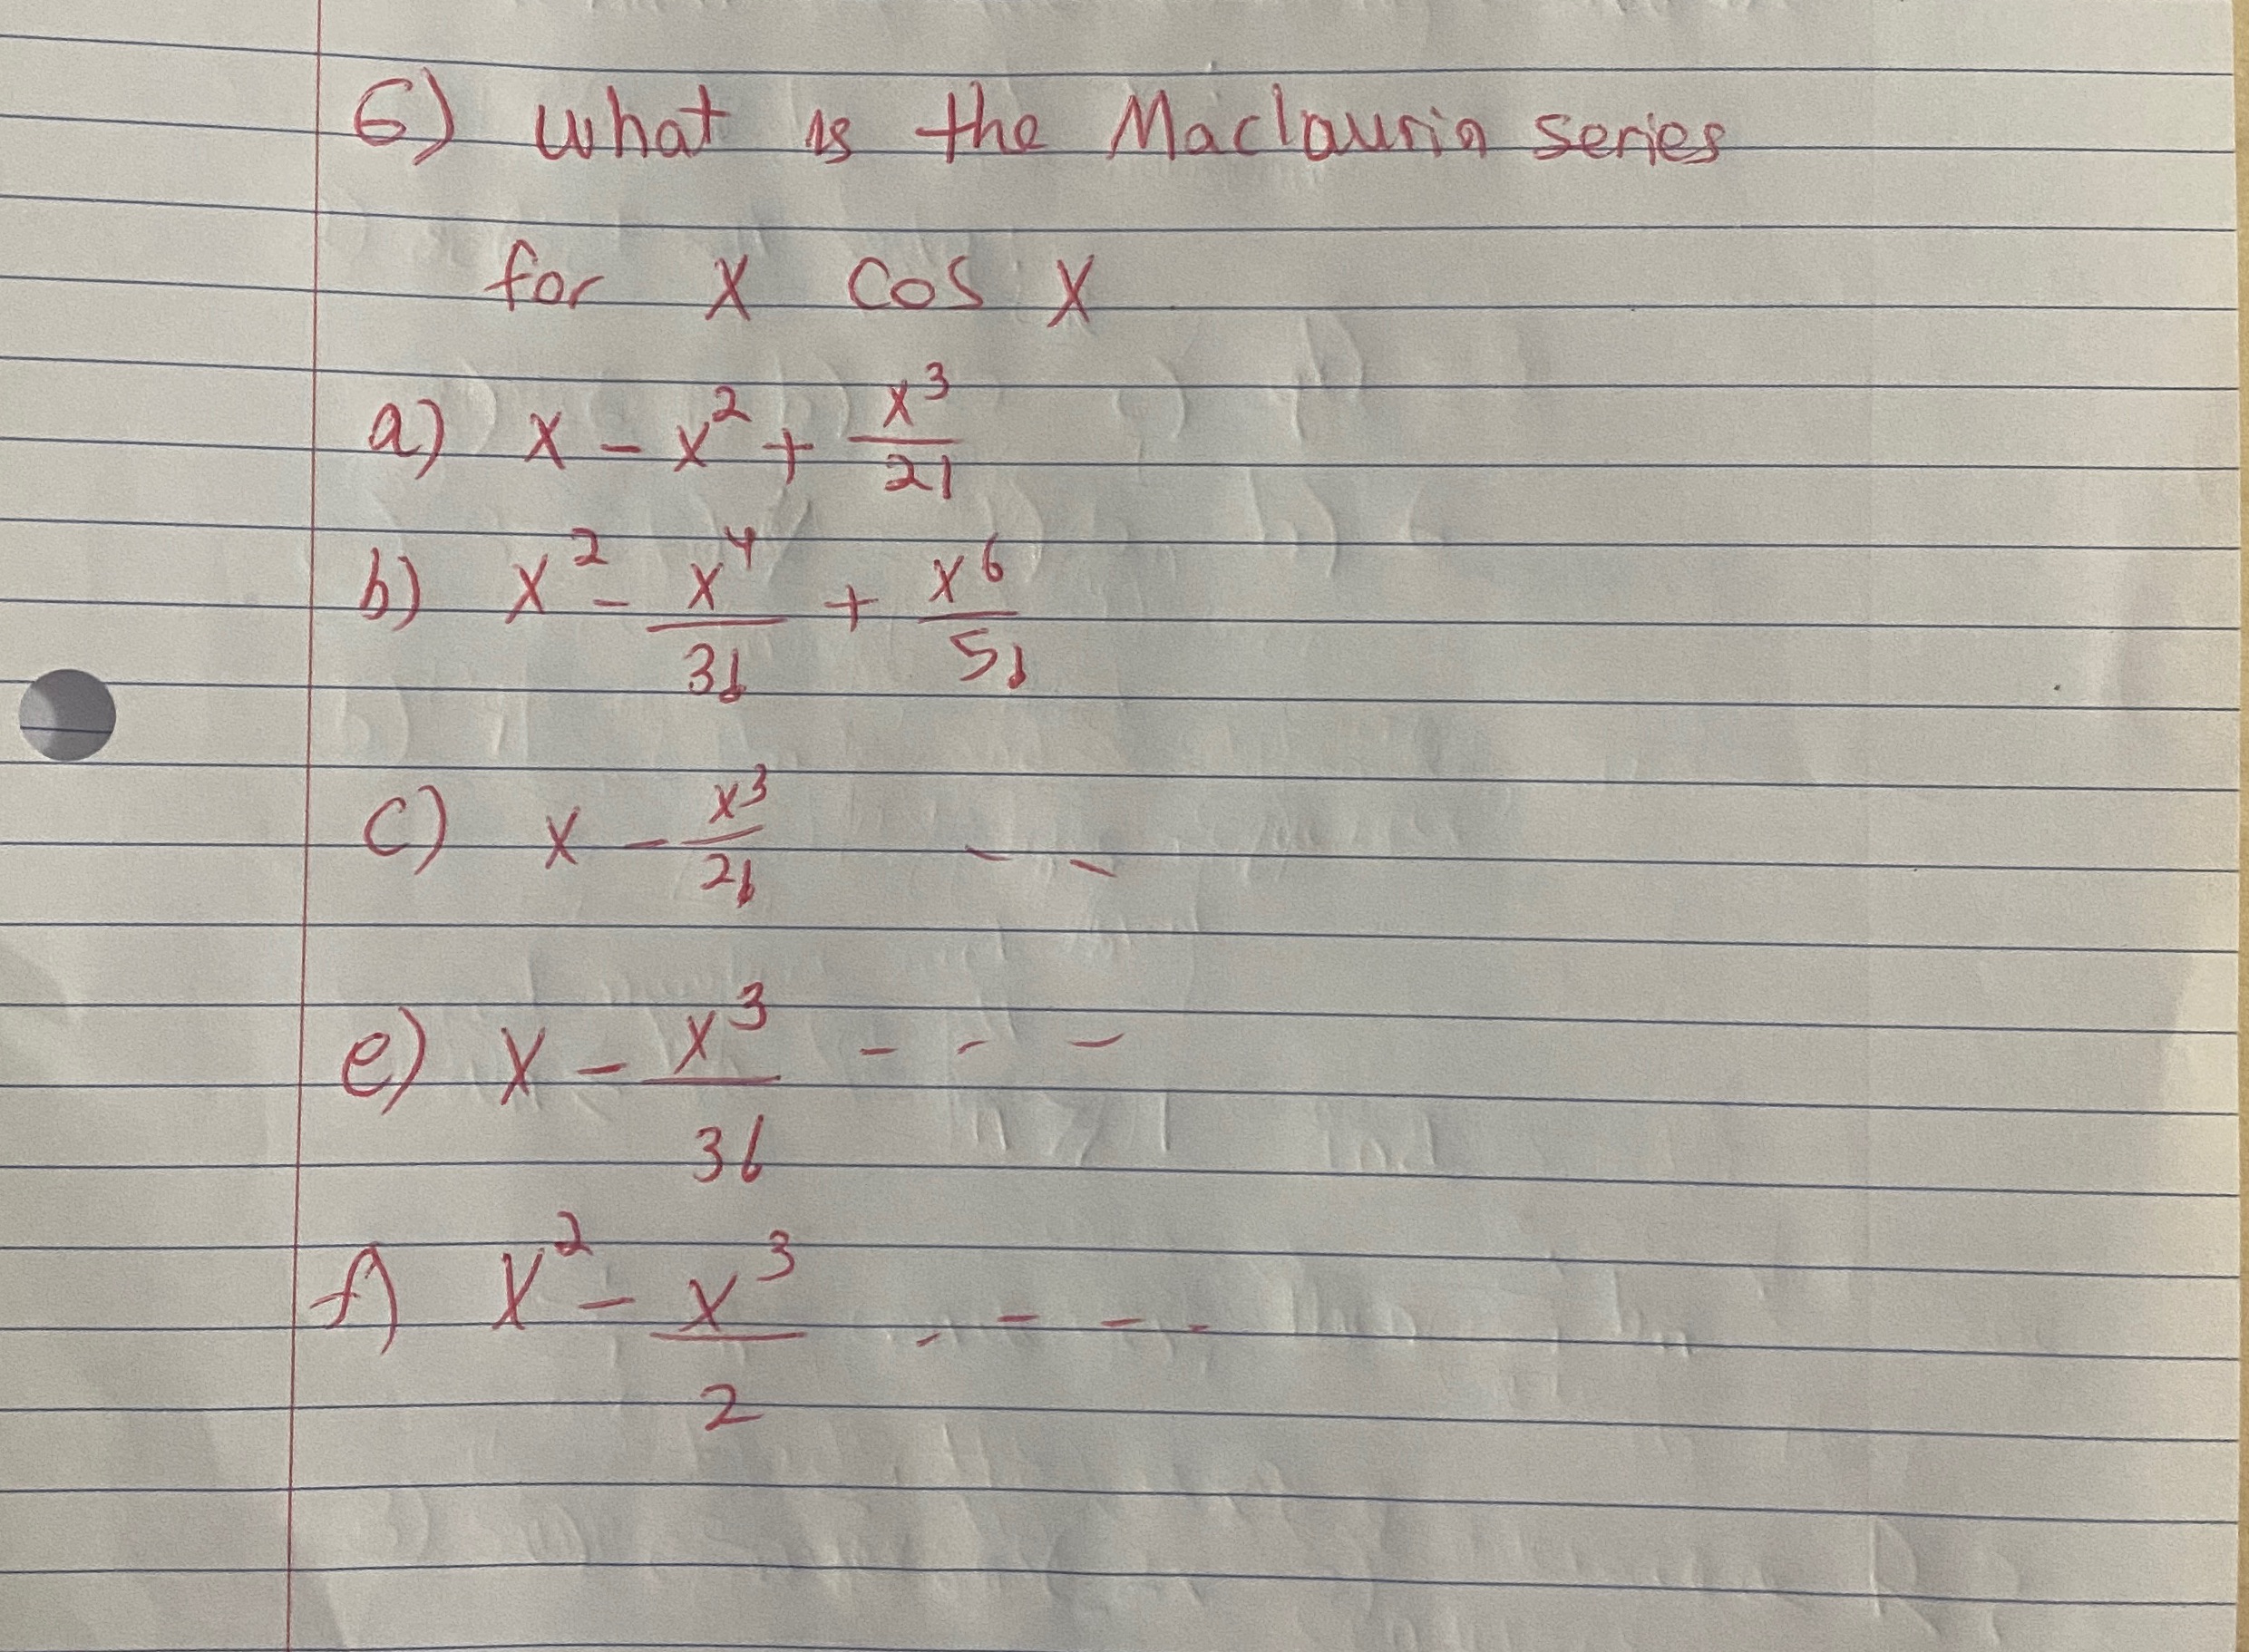 6) What is the Maclaurin series
for x cos x
a) x - x² + x³/2!
b) x² - x⁴/3! + x⁶/5!
c) x - x³/2! - -
e) x - x³/3! - - -
f) x² - x³/2 - - - -